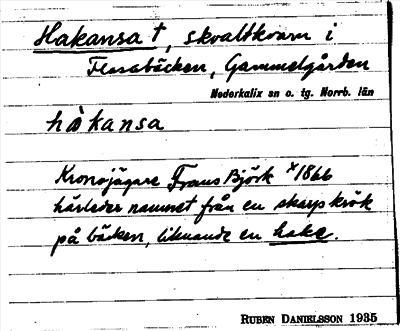 Hakansa †, skvaltkvarn i
Flarabäcken, Gammelgården
Nederkalix sn o. tg. Norrb. län
håkansa
Kronojägare Frans Björk *1866
härleder namnet från en skarp krök
på bäcken, liknande en hake.
RUBEN DANIELSSON 1935